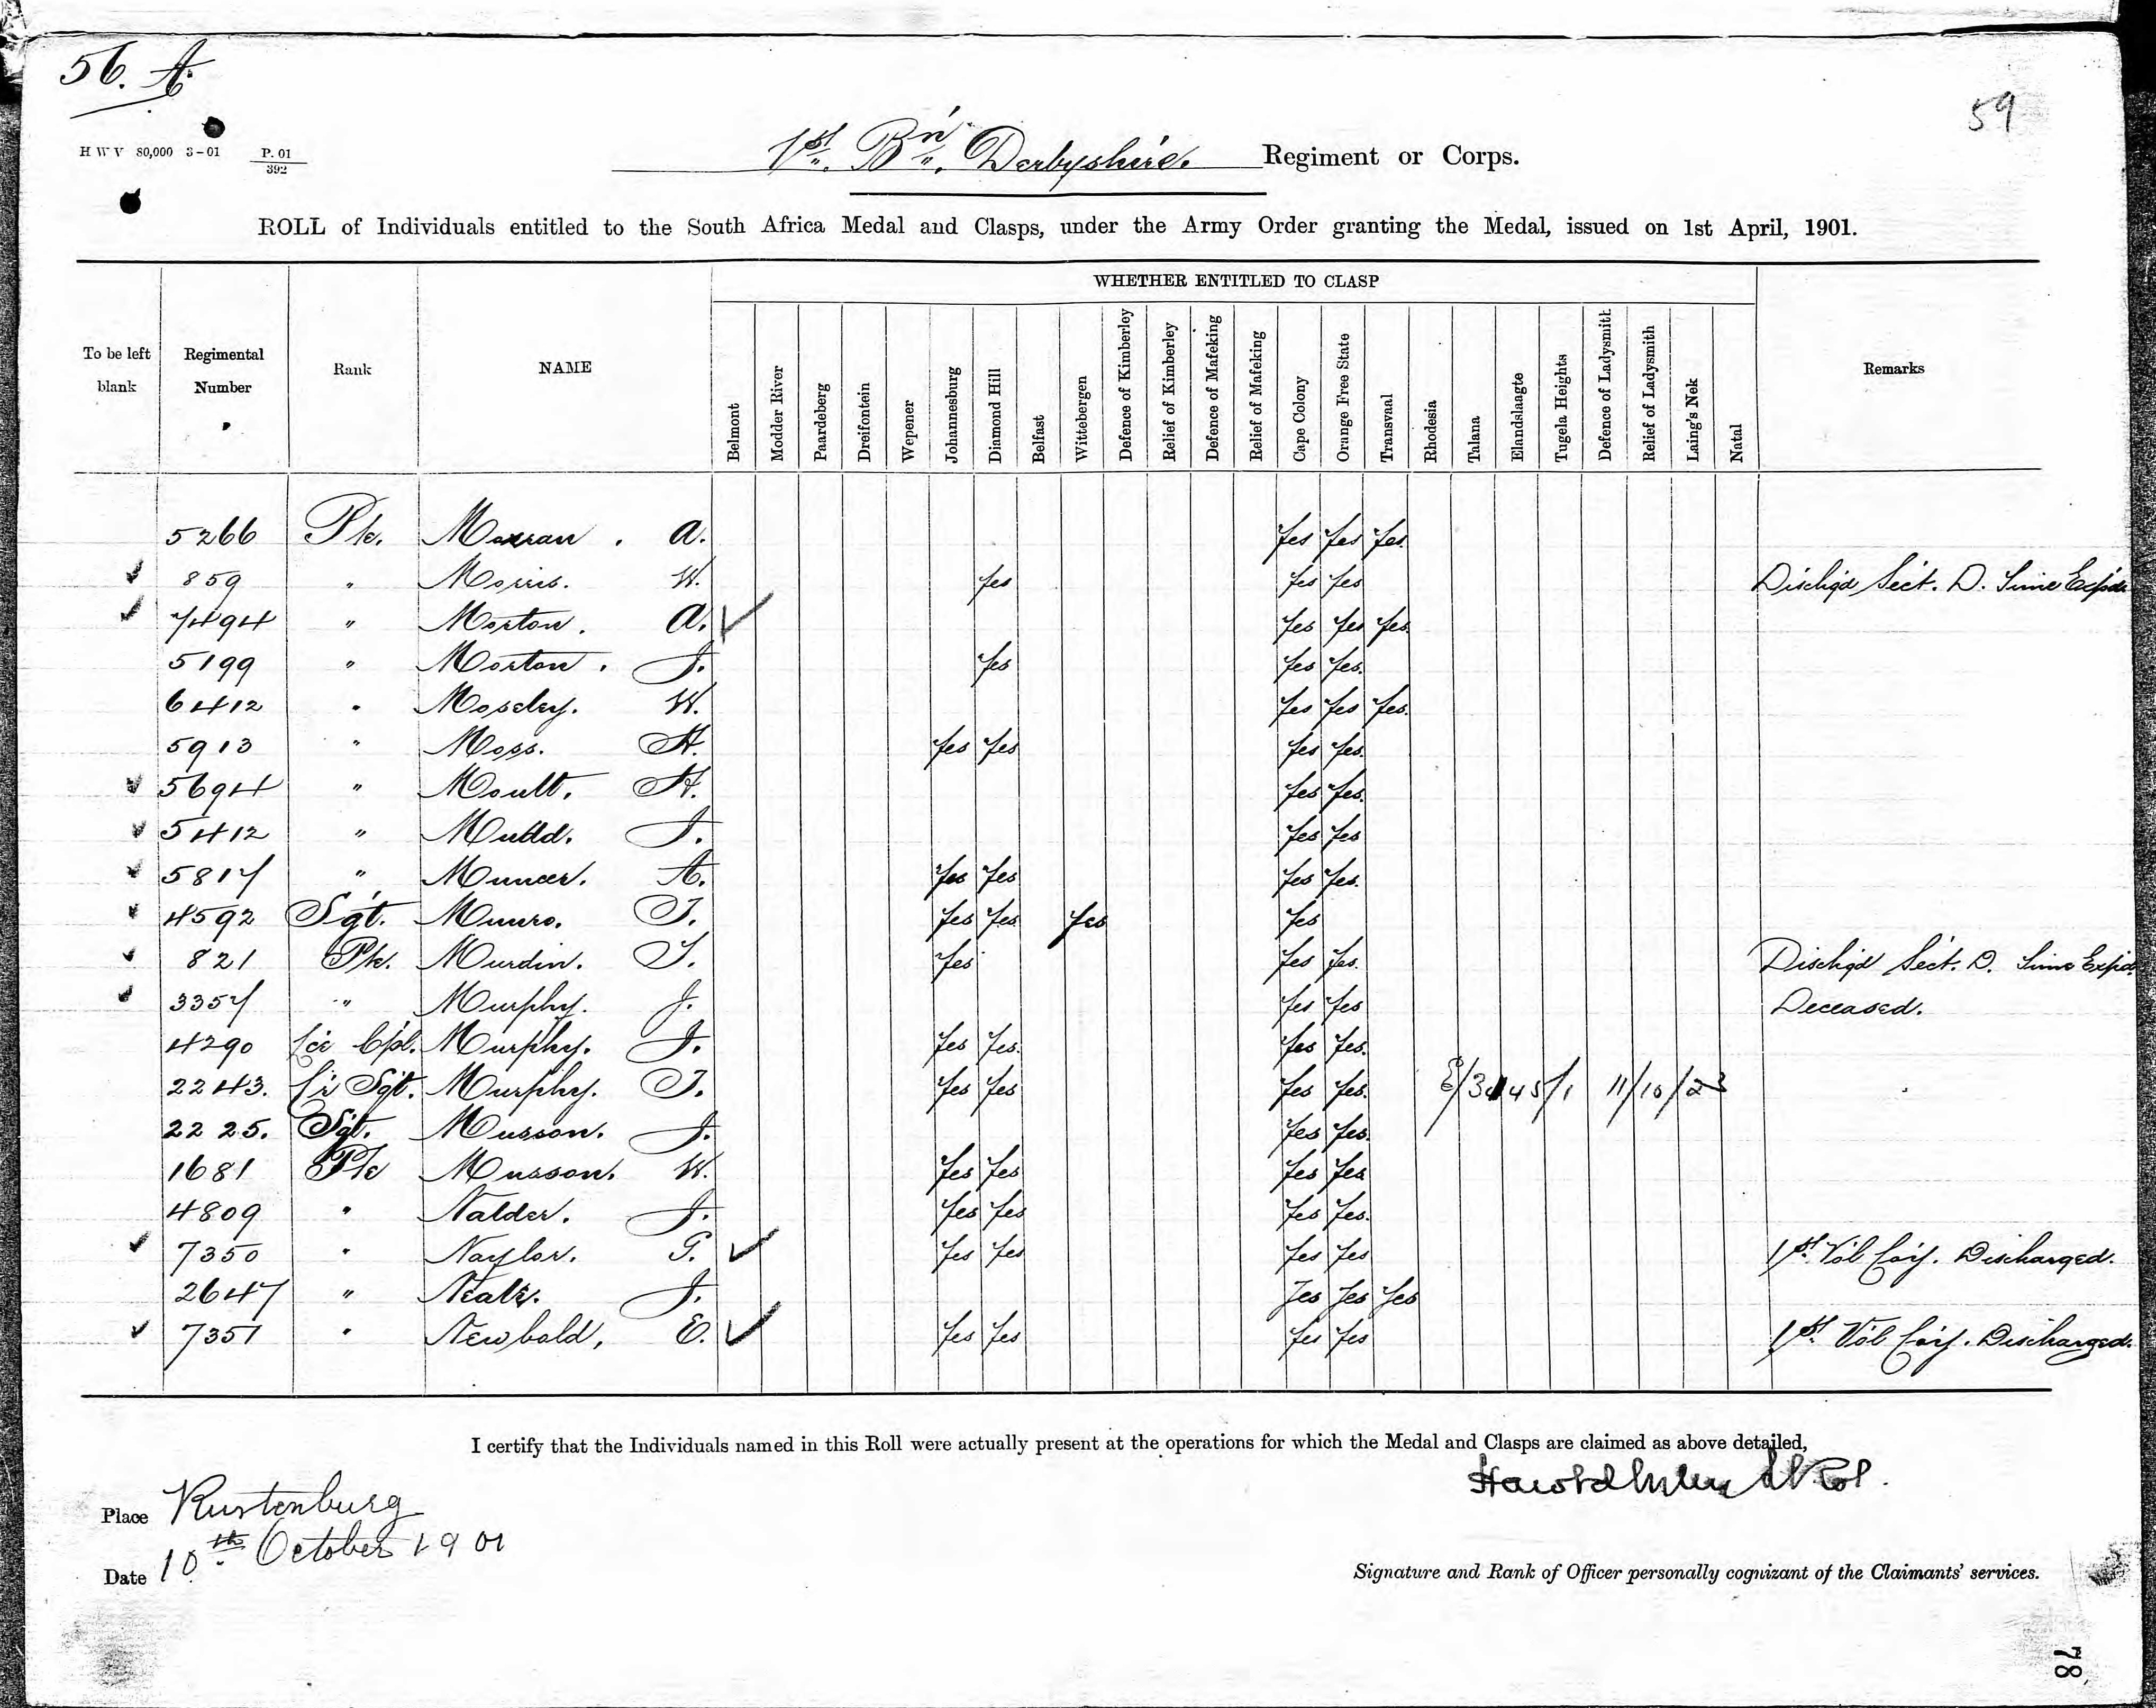 56. A.
59
H W V 80,000 3-01 P. 01/392
1st Bn. Derbyshire. Regiment or Corps.
ROLL of Individuals entitled to the South Africa Medal and Clasps, under the Army Order granting the Medal, issued on 1st April, 1901.
WHETHER ENTITLED TO CLASP
To be left blank Regimental Number Rank NAME Belmont Modder River Paardeberg Dreifontein Wepener Johannesburg Diamond Hill Belfast Wittebergen Defence of Kimberley Relief of Kimberley Defence of Mafeking Relief of Mafeking Cape Colony Orange Free State Transvaal Rhodesia Talana Elandslaagte Tugela Heights Defence of Ladysmith Relief of Ladysmith Laing's Nek Natal Remarks
5266 Pte. Morran. A. Yes Yes Yes.
✓ 859 " Morris. W. Yes Yes Yes Dischgd Sect. D. Time Expd.
✓ 7494 " Morton. A. ✓ Yes Yes Yes.
5199 " Morton. J. Yes Yes Yes.
6412 " Moseley. W. Yes. Yes Yes.
5913 " Moss. H. Yes Yes Yes Yes.
✓ 5694 " Moult. H. Yes Yes.
✓ 5412 " Mudd. J. Yes Yes
✓ 5817 " Muncer. A. Yes Yes Yes Yes.
✓ 4592 Sgt. Munro. T. Yes Yes Yes Yes
✓ 821 Pte. Murdin. T. Yes Yes Yes. Dischgd Sect. D. Time Expd.
✓ 3357 " Murphy. J. Yes Yes Deceased.
4290 Lce Cpl. Murphy. J. Yes Yes. Yes Yes.
2243. Sgt. Murphy. T. Yes Yes Yes Yes. 11/10/23
2225. Sgt. Musson. J. Yes Yes.
1681 Pte Musson. W. Yes Yes Yes Yes
4809 " Nalder. J. Yes Yes Yes Yes.
✓ 7350 " Naylor. G. ✓ Yes Yes Yes Yes 1st Vol Coy. Discharged.
2647 " Neale. J. Yes Yes Yes
✓ 7351 " Newbold, E. ✓ Yes Yes Yes Yes 1st Vol Coy. Discharged.
I certify that the Individuals named in this Roll were actually present at the operations for which the Medal and Clasps are claimed as above detailed,
Place Rustenburg
Date 10th October 1901
Signature and Rank of Officer personally cognizant of the Claimants' services.
78